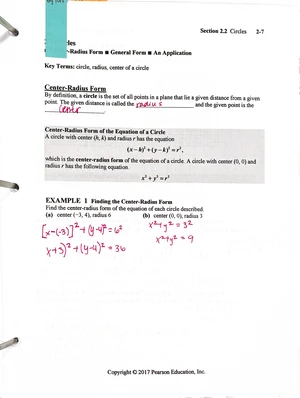 Section 2.2 Circles 2-7
Circles
-Radius Form ■ General Form ■ An Application
Key Terms: circle, radius, center of a circle
Center-Radius Form
By definition, a circle is the set of all points in a plane that lie a given distance from a given
point. The given distance is called the radius and the given point is the
center.
Center-Radius Form of the Equation of a Circle
A circle with center (h, k) and radius r has the equation
(x − h)² + (y − k)² = r²,
which is the center-radius form of the equation of a circle. A circle with center (0, 0) and
radius r has the following equation.
x² + y² = r²
EXAMPLE 1 Finding the Center-Radius Form
Find the center-radius form of the equation of each circle described.
(a) center (−3, 4), radius 6 (b) center (0, 0), radius 3
[x-(-3)]² + (y-4)² = 6² x² + y² = 3²
x+3)² + (y-4)² = 36 x² + y² = 9
Copyright © 2017 Pearson Education, Inc.